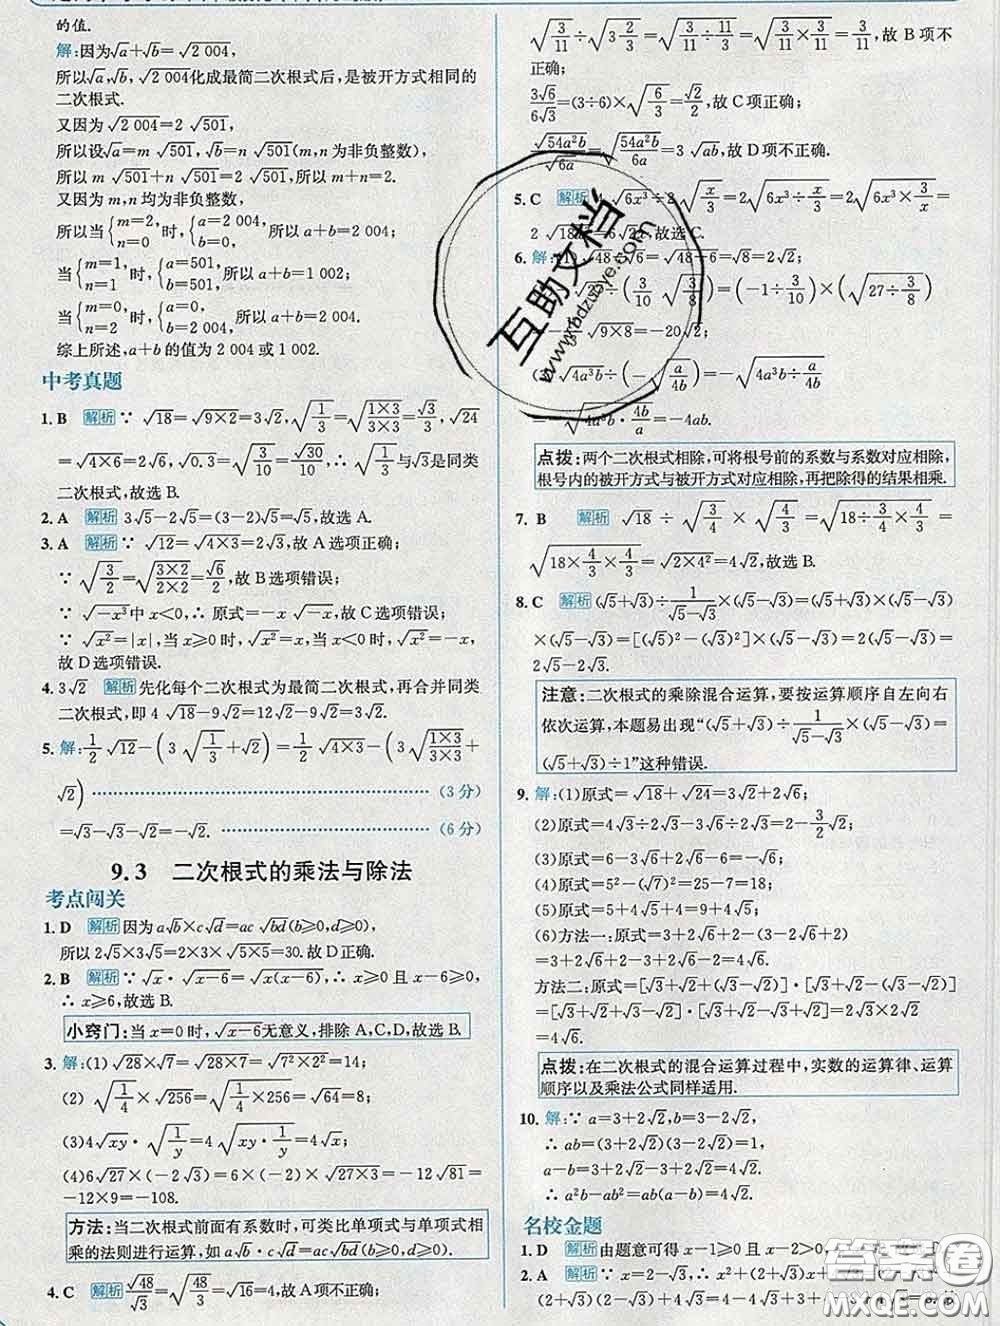 的值.
解:因为√a+√b=√2 004,
所以√a,√b,√2 004化成最简二次根式后,是被开方式相同的
二次根式.
又因为√2 004=2√501,
所以设√a=m√501,√b=n√501(m,n为非负整数),
所以m√501+n√501=2√501,所以m+n=2.
又因为m,n均为非负整数,
所以当{m=2, n=0时,{a=2 004, b=0, 所以a+b=2 004;
当{m=1, n=1时,{a=501, b=501, 所以a+b=1 002;
当{m=0, n=2时,{a=0, b=2 004, 所以a+b=2 004.
综上所述,a+b的值为2 004或1 002.
中考真题
1. B 解析 ∵√18=√(9×2)=3√2,√(1/3)=√((1×3)/(3×3))=√3/3,√24
=√(4×6)=2√6,√0.3=√(3/10)=√30/10,∴√(1/3)与√3是同类
二次根式,故选B.
2. A 解析 3√5-2√5=(3-2)√5=√5,故选A.
3. A 解析 ∵√12=√(4×3)=2√3,故A选项正确;
∵√(3/2)=√((3×2)/(2×2))=√6/2,故B选项错误;
∵√(-x³)中x<0,∴原式=-x√(-x),故C选项错误;
∵√(x²)=|x|,当x≥0时,√(x²)=x,当x<0时,√(x²)=-x,
故D选项错误.
4. 3√2 解析 先化每个二次根式为最简二次根式,再合并同类
二次根式,即4√18-9√2=12√2-9√2=3√2.
5. 解:1/2√12-(3√(1/3)+√2)=1/2√(4×3)-(3√((1×3)/(3×3))+
√2) ………… (3分)
=√3-√3-√2=-√2. ………… (6分)
9.3 二次根式的乘法与除法
考点闯关
1. D 解析 因为a√b×c√d=ac√bd(b≥0,d≥0),
所以2√5×3√5=2×3×√(5×5)=30.故D正确.
2. B 解析 ∵√x·√(x-6)=√(x(x-6)),∴x≥0且x-6≥0,
∴x≥6,故选B.
小窍门:当x=0时,√(x-6)无意义,排除A,C,D,故选B.
3. 解:(1)√28×√7=√(28×7)=√(7²×2²)=14;
(2)√(1/4)×√256=√(1/4×256)=√64=8;
(3)4√xy·√(1/y)=4√(xy·1/y)=4√x;
(4)6√27×(-2√3)=6×(-2)×√(27×3)=-12√81=
-12×9=-108.
方法:当二次根式前面有系数时,可类比单项式与单项式相
乘的法则进行运算,如a√b·c√d=ac√bd(b≥0,d≥0).
4. C 解析 √48/√3=√(48/3)=√16=4,故A项不正确;
√(3/11)÷√(3 2/3)=√(3/11÷11/3)=√(3/11×3/11)=3/11,故B项不
正确;
3√6/6√3=(3÷6)×√(6/3)=√2/2,故C项正确;
√(54a²b)/√(6a)=√(54a²b/6a)=3√ab,故D项不正确.
5. C 解析 √(6x³)÷2√(x/3)=2√(6x³÷x/3)=2√(6x³×3/x)=
2√18
6. 解:(1)√48÷√6=√(48÷6)=√8=2√2;
÷(3/10√(3/8))=(-1÷3/10)×√(27÷3/8)=
√(9×8)=-20√2;
√(4a³b)÷(-√(a/4b))=-√(4a³b÷a/4b)=
√(4a³b·4b/a)=-4ab.
点拨:两个二次根式相除,可将根号前的系数与系数对应相除,
根号内的被开方式与被开方式对应相除,再把除得的结果相乘.
7. B 解析 √18÷√(3/4)×√(4/3)=√(18÷3/4×4/3)=
√(18×4/3×4/3)=√(2×4²)=4√2,故选B.
8. C 解析 (√5+√3)÷1/(√5-√3)×(√5-√3)=(√5+√3)×(√5-√3)
×(√5-√3)=[(√5)²-(√3)²]×(√5-√3)=2×(√5-√3)=
2√5-2√3.
注意:二次根式的乘除混合运算,要按运算顺序自左向右
依次运算,本题易出现“(√5+√3)÷1/(√5-√3)×(√5-√3)=
(√5+√3)÷1”这种错误.
9. 解:(1)原式=√18+√24=3√2+2√6;
(2)原式=4√3÷2√3-3√6÷2√3=2-3/2√2;
(3)原式=6-3√6+2√6-6=-√6;
(4)原式=18-12=6;
(5)原式=5+4√5+4=9+4√5;
(6)方法一:原式=3+2√6+2-(3-2√6+2)
=3+2√6+2-3+2√6-2=4√6.
方法二:原式=[√3+√2+(√3-√2)]×[√3+√2-(√3-√2)]
=[√3+√2+√3-√2]×[√3+√2-√3+√2]=2√3×2√2
=4√6.
点拨:在二次根式的混合运算过程中,实数的运算律、运算
顺序以及乘法公式同样适用.
10. 解:∵a=3+2√2,b=3-2√2,
∴ab=(3+2√2)(3-2√2)=1,
a-b=3+2√2-3+2√2=4√2,
∴a²b-ab²=ab(a-b)=4√2.
名校金题
1. D 解析 由题意可得x-1≥0且x-2>0,
2. A 解析 ∵x=2-√3,∴x²=
(2+√3)
互助文档
www.bdzuoye.com
答案卷
MXQE.COM